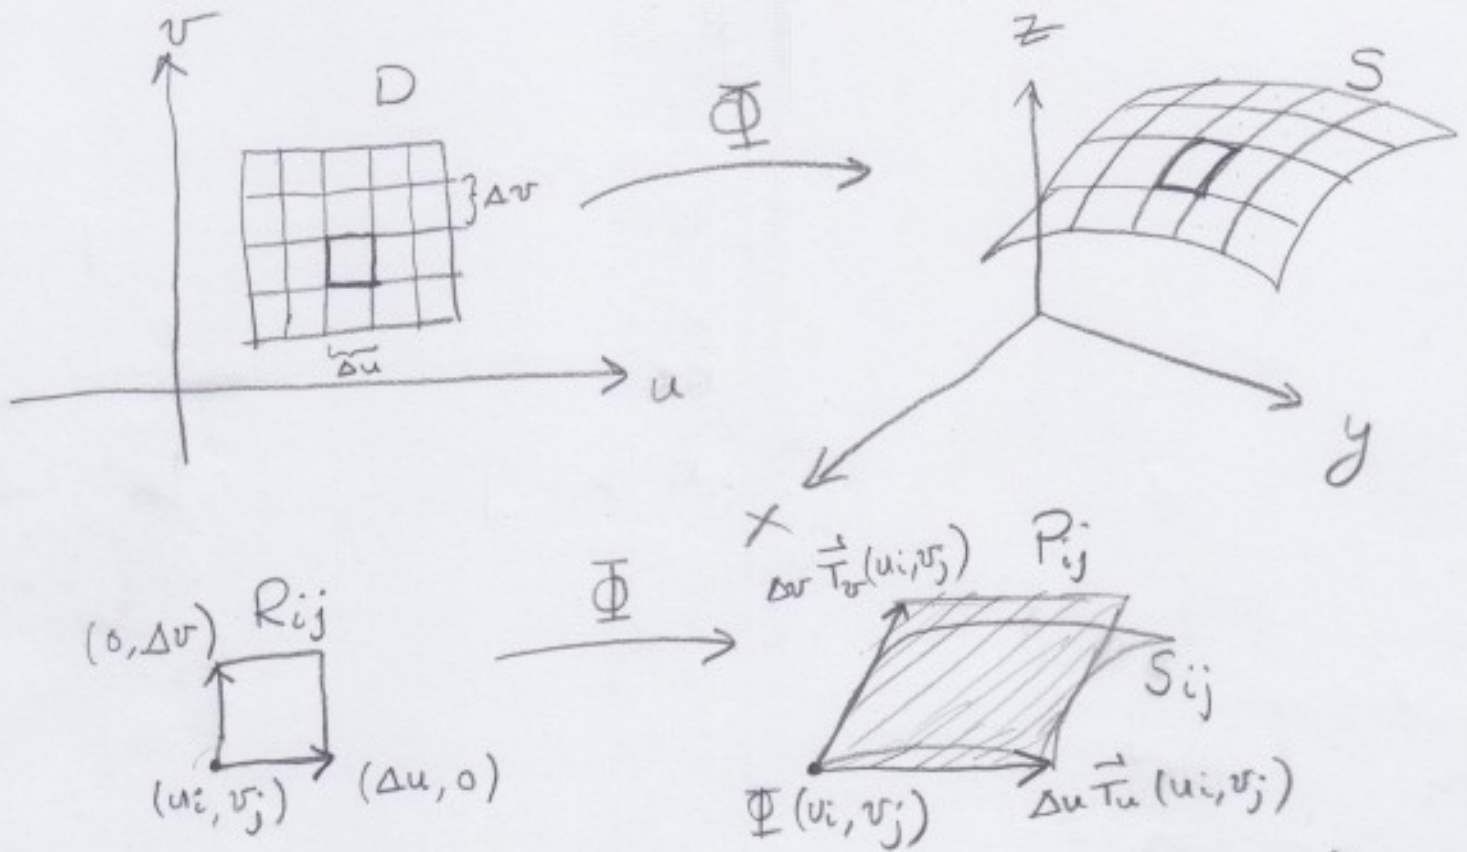 v
D
Δv
Δu
u
Φ
z
S
y
x
R_{ij}
(0, Δv)
(u_i, v_j)
(Δu, 0)
Φ
Δv \vec{T}_v(u_i, v_j)
P_{ij}
S_{ij}
Φ(u_i, v_j)
Δu \vec{T}_u(u_i, v_j)